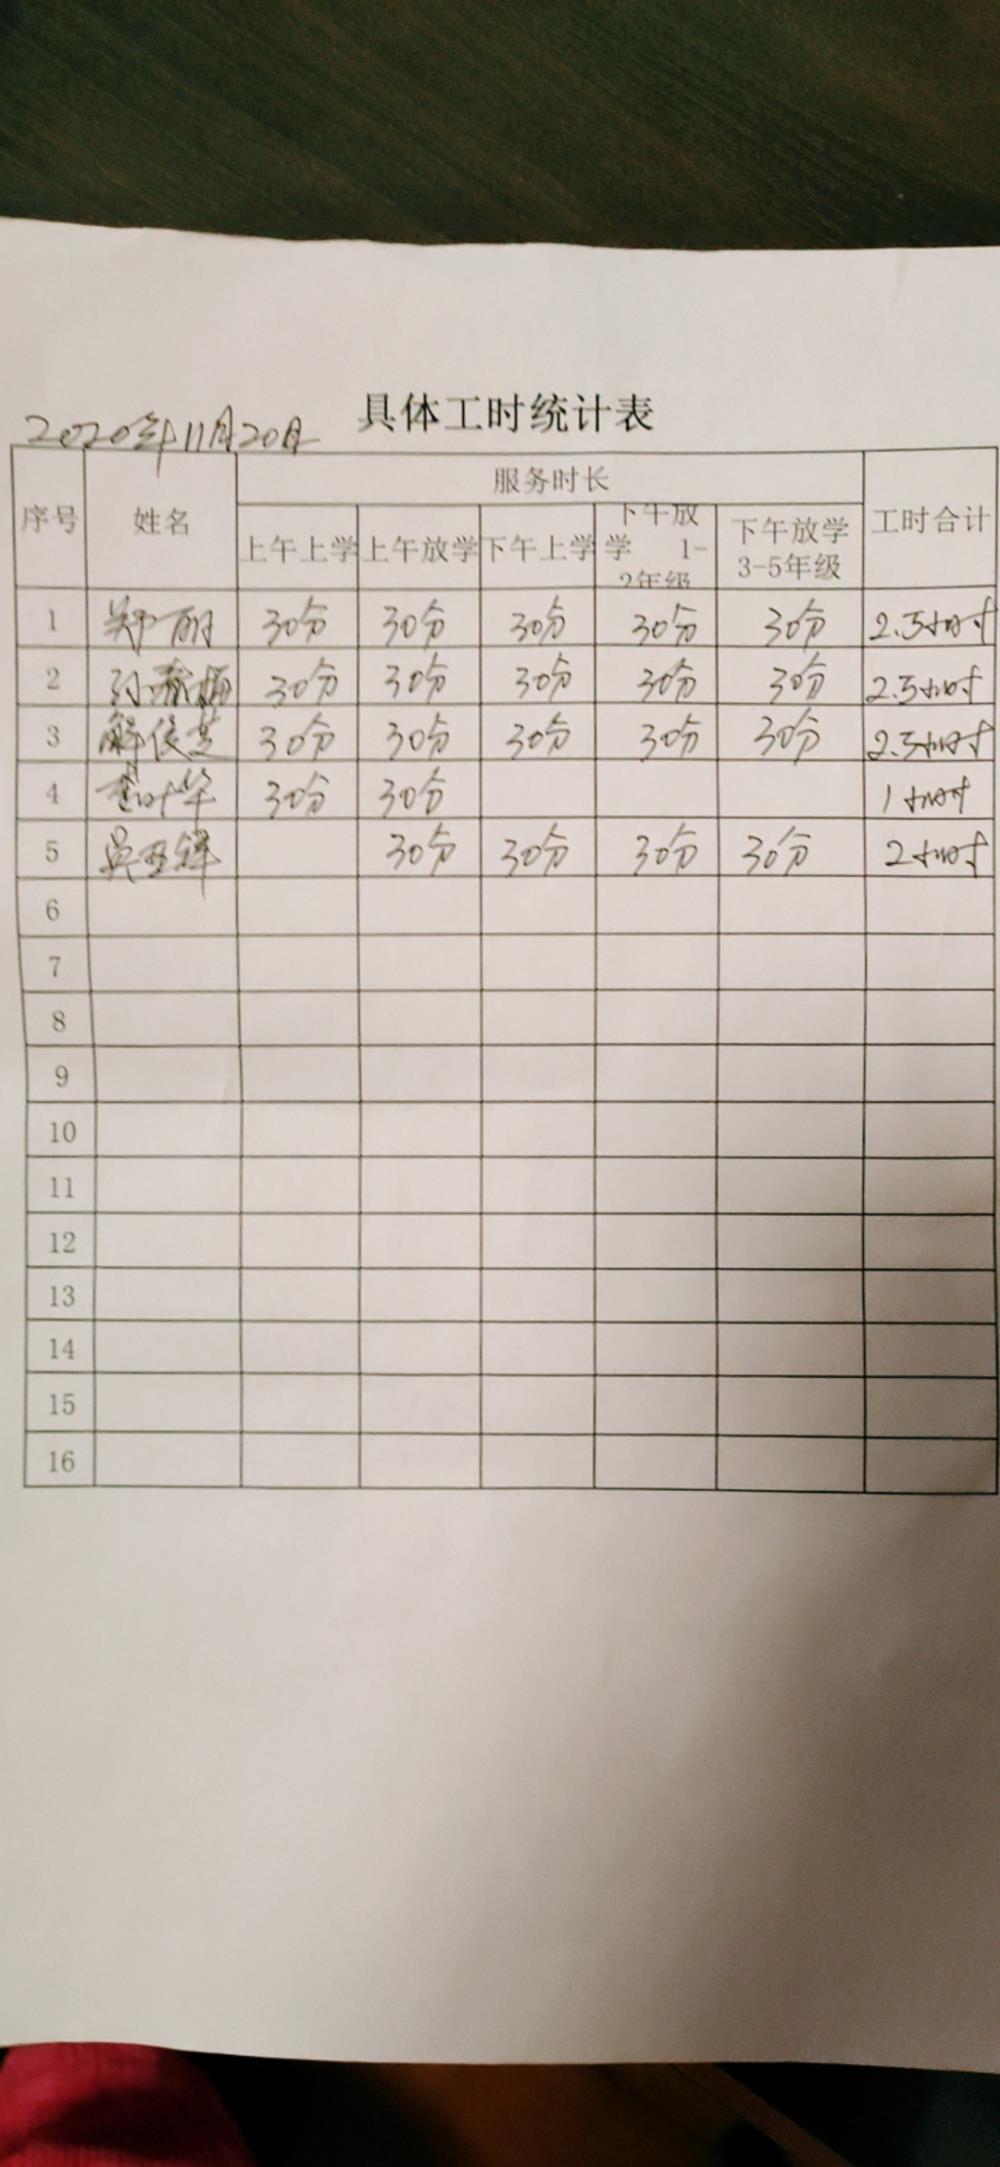 具体工时统计表
2020年11月20日
序号 姓名 服务时长 工时合计
上午上学 上午放学 下午上学 下午放学 1-2年级 下午放学 3-5年级
1 郑丽 30分 30分 30分 30分 30分 2.5小时
2 30分 30分 30分 30分 30分 2.5小时
3 解俊芝 30分 30分 30分 30分 30分 2.5小时
4 30分 30分 1小时
5 30分 30分 30分 30分 2小时
6
7
8
9
10
11
12
13
14
15
16